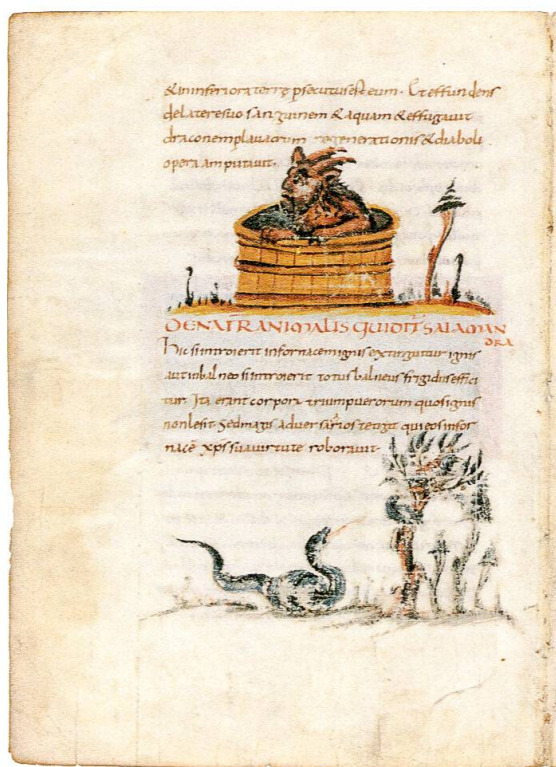 &in inferiora terrę psecutus est eum. Et effundens
de latere suo sanguinem & aquam & effugavit
draconem p lavacrum regenerationis & diaboli
opera amputavit.
DE NATR ANIMALIS QUI DIT SALAMAN
DRA
Hic si introierit in fornacem ignis extinguitur ignis
aut in balneo si introierit totus balneus frigidus effici
tur. Ita erant corpora trium puerorum quos ignis
non lesit Sed magis adversarios tetigit qui eos in for
nacē xps sua virtute roboravit